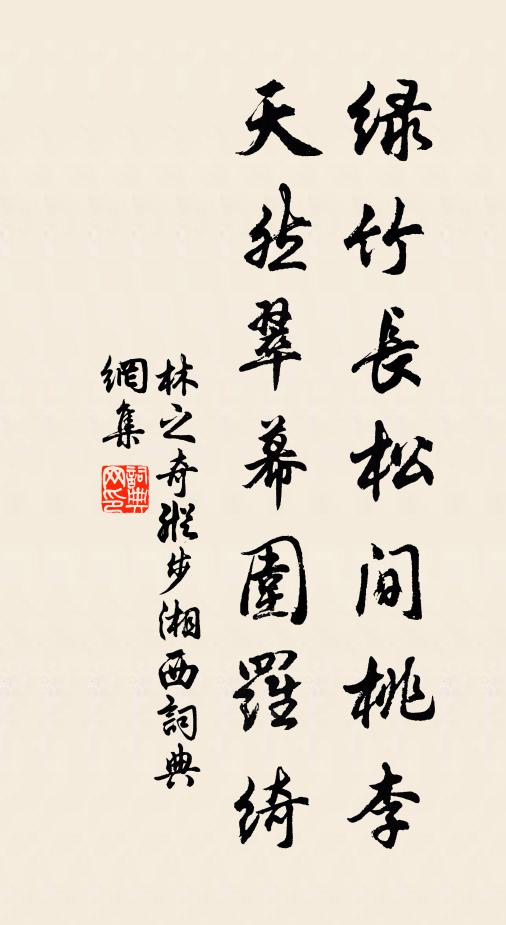 绿竹長松間桃李
天然翠幕圍羅綺
林之奇縱步湘西詞典
網集
詞典網印